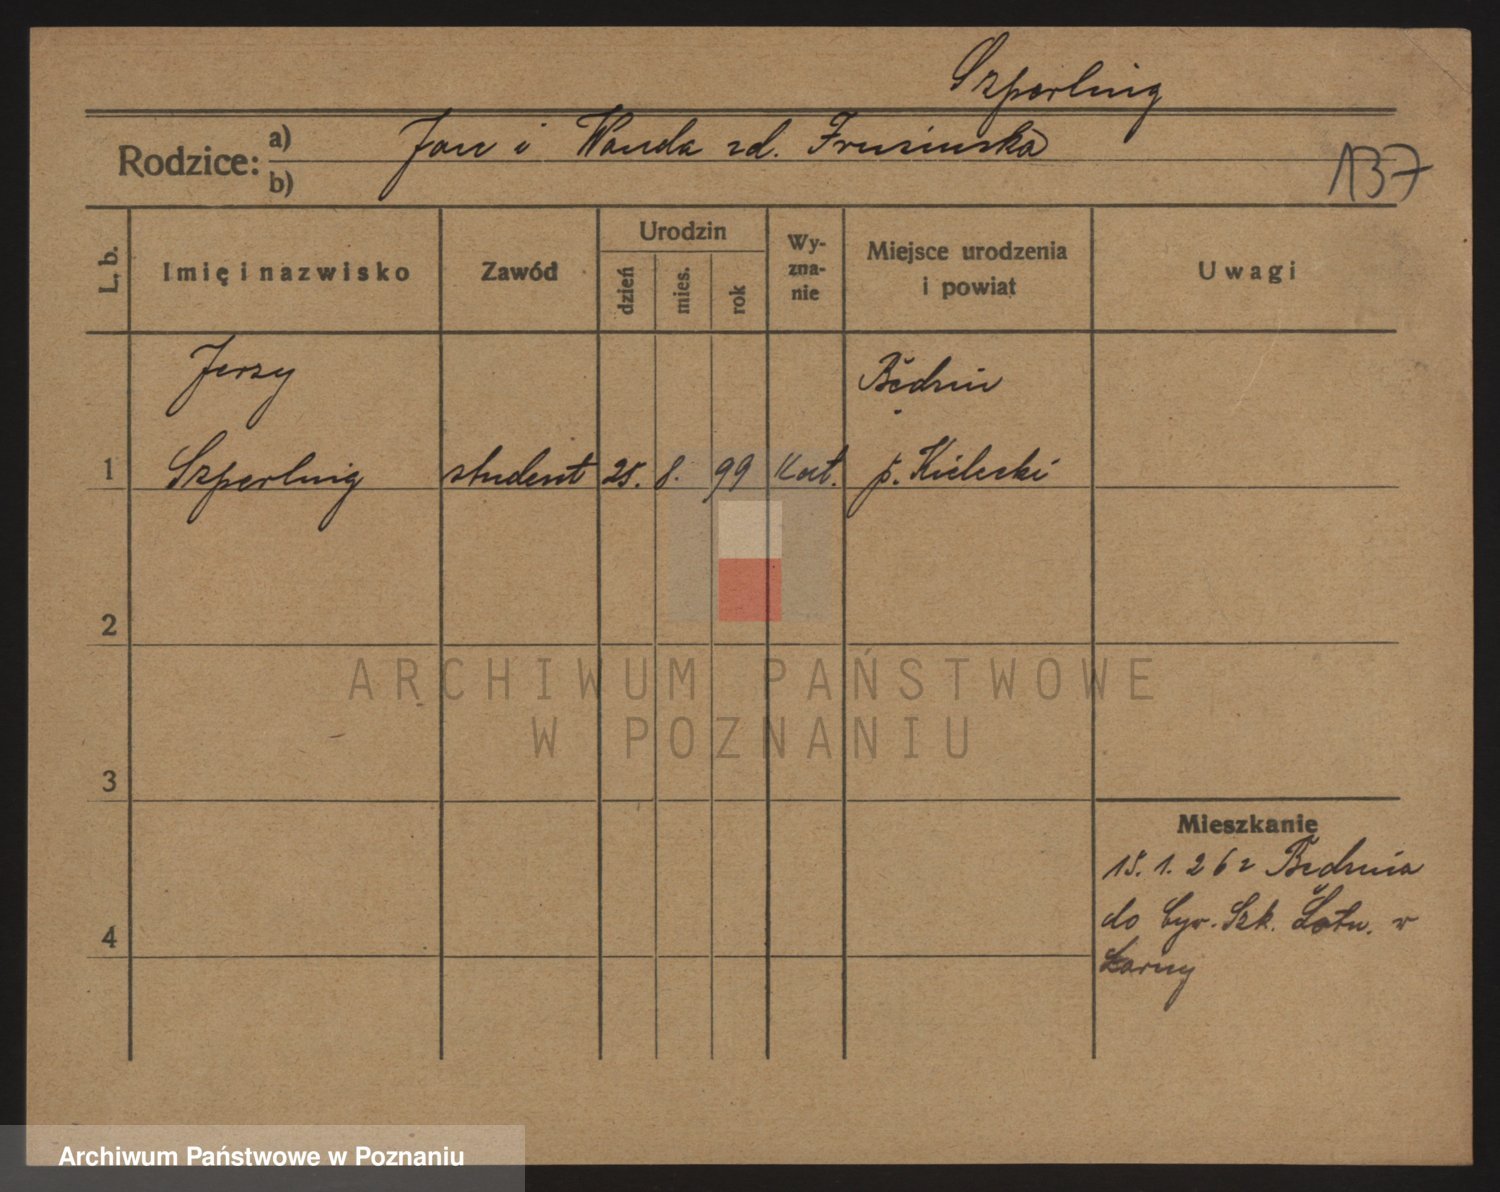 Szperling
Rodzice: a) Jan i Wanda zd. Frusińska
b)
137
L. b.
Imię i nazwisko
Zawód
Urodzin
dzień
mies.
rok
Wy-
zna-
nie
Miejsce urodzenia
i powiat
Uwagi
Jerzy
Będzin
1 Szperling student 25. 8. 99 Kat. p. Kielecki
2
ARCHIWUM PAŃSTWOWE
W POZNANIU
3
Mieszkanie
15. 1. 26 z Będzina
do Cyw. Szk. Lotn. w
4
Archiwum Państwowe w Poznaniu